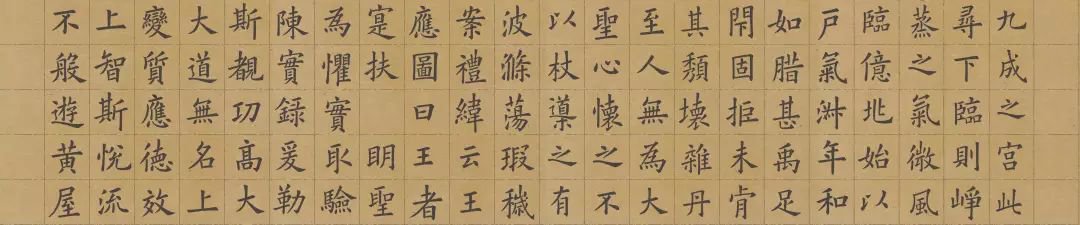 九成之宮此
尋下臨則崢
蒸之氣微風
臨億兆始以
戸氣淑年和
如腊甚禹足
閇固拒未肯
其頽壞雜丹
至人無為大
聖心懷之不
以杖導之有
波滌蕩瑕穢
案禮緯云王
應圖曰王者
寔扶明聖
為懼實取驗
陳實録爰勒
斯覩功高大
大道無名上
變質應德效
上智斯悅流
不般遊黃屋